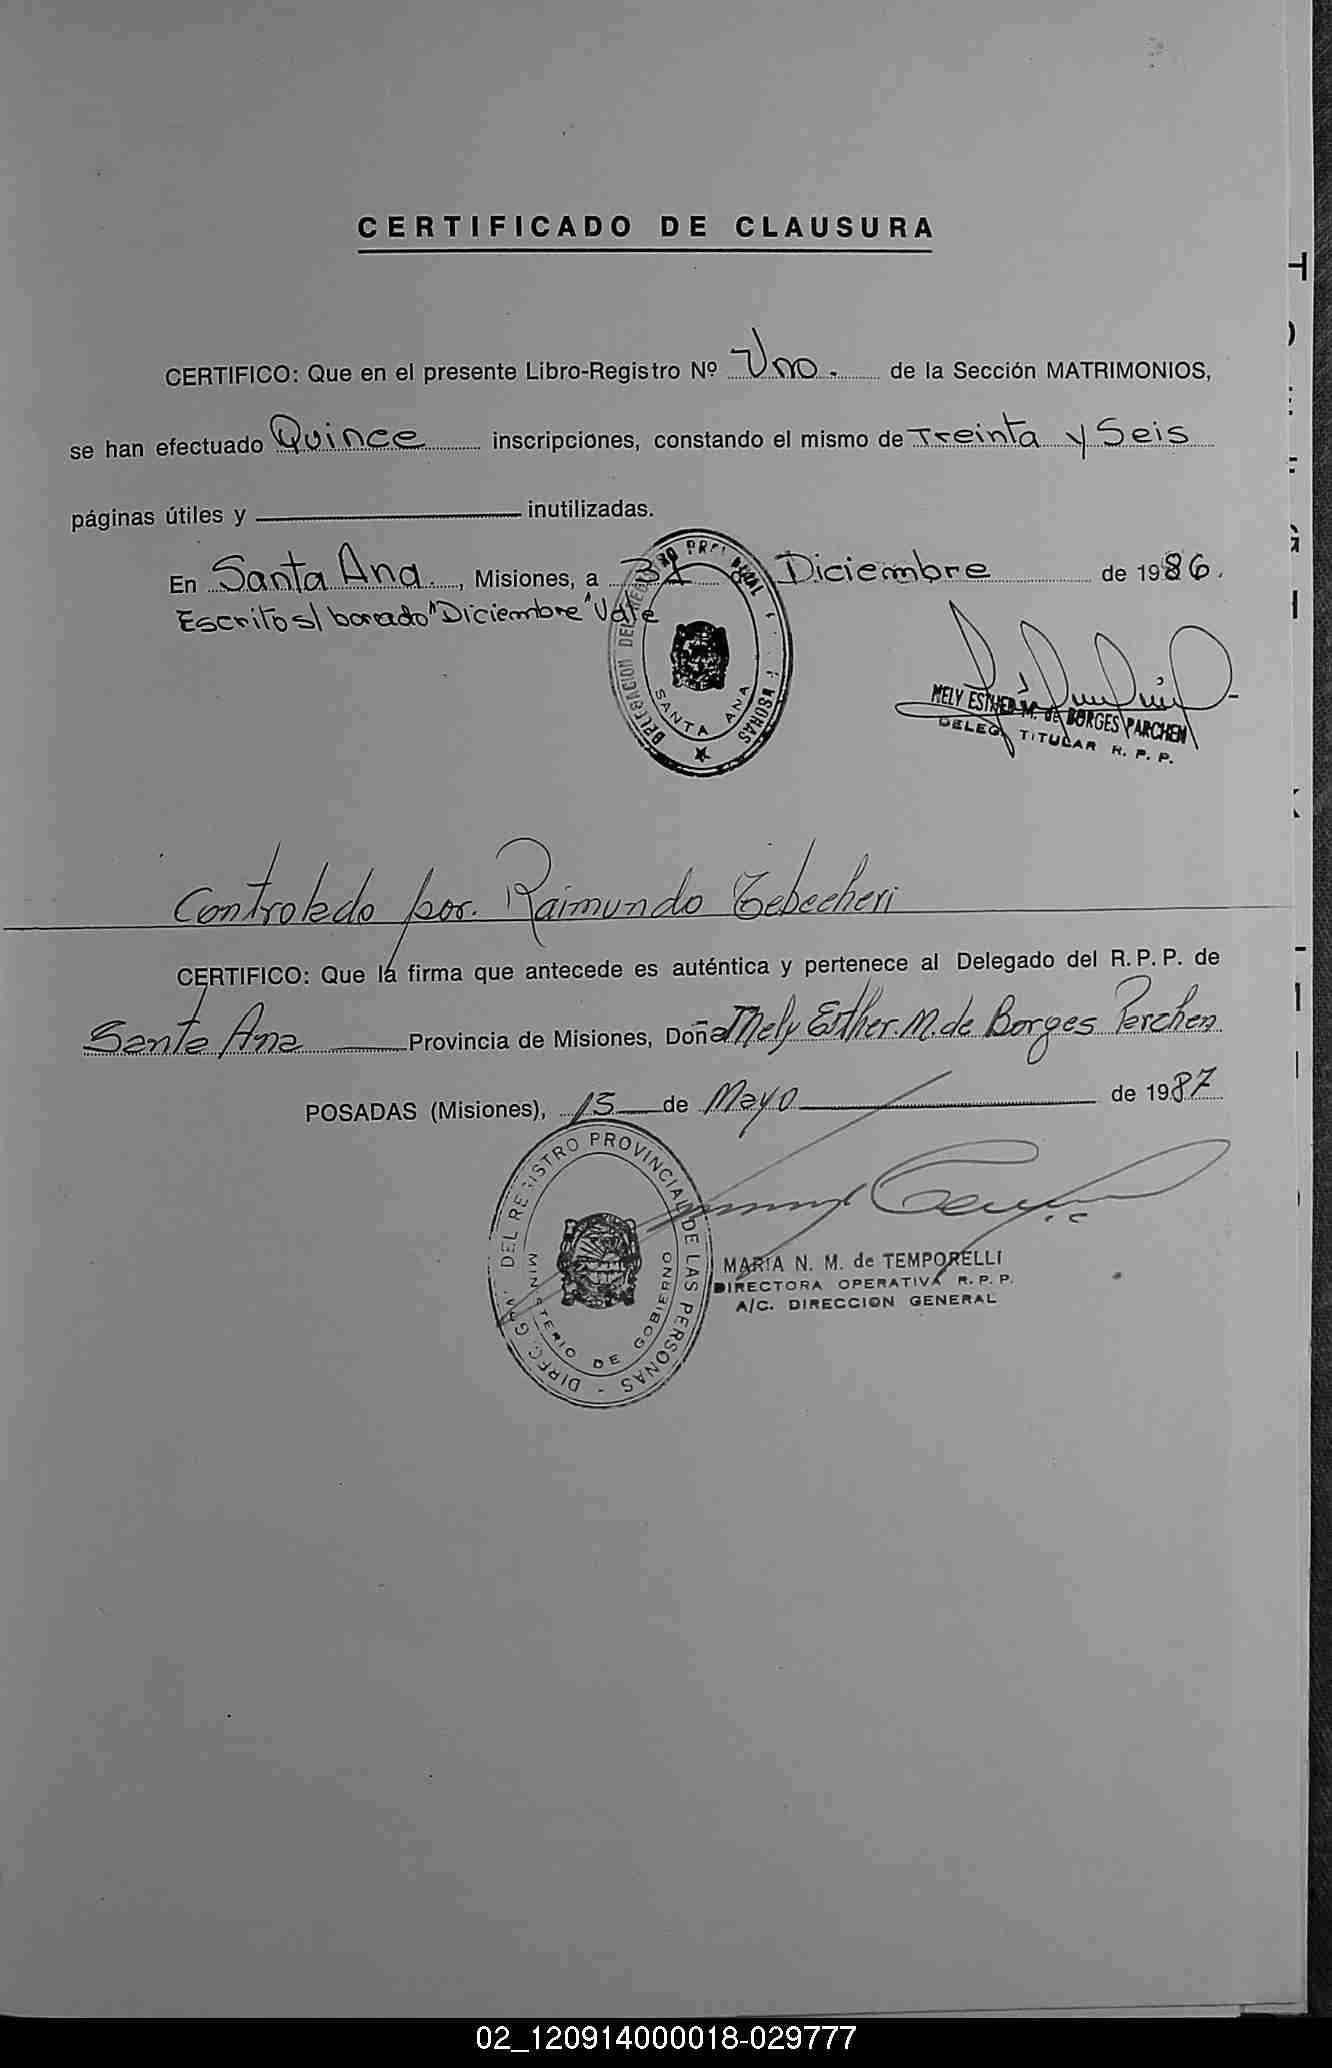 CERTIFICADO DE CLAUSURA
CERTIFICO: Que en el presente Libro-Registro Nº Uno. de la Sección MATRIMONIOS,
se han efectuado Quince inscripciones, constando el mismo de Treinta y Seis
páginas útiles y inutilizadas.
En Santa Ana, Misiones, a 31 Diciembre de 1986.
Escrito s/ borrado "Diciembre" Vale
DELEGACION DEL REGISTRO PERSONAS
SANTA ANA
MELY ESTHER M. de BORGES PARCHEN
DELEG. TITULAR R. P. P.
Controlado por. Raimundo Tebecheri
CERTIFICO: Que la firma que antecede es auténtica y pertenece al Delegado del R. P. P. de
Santa Ana Provincia de Misiones, Doña Mely Esther M. de Borges Parchen
POSADAS (Misiones), 15 de Mayo de 1987
DIREC. GRAL. DEL REGISTRO PROVINCIAL DE LAS PERSONAS -
MINISTERIO DE GOBIERNO
MARIA N. M. de TEMPORELLI
DIRECTORA OPERATIVA R. P. P.
A/C. DIRECCION GENERAL
02_120914000018-029777